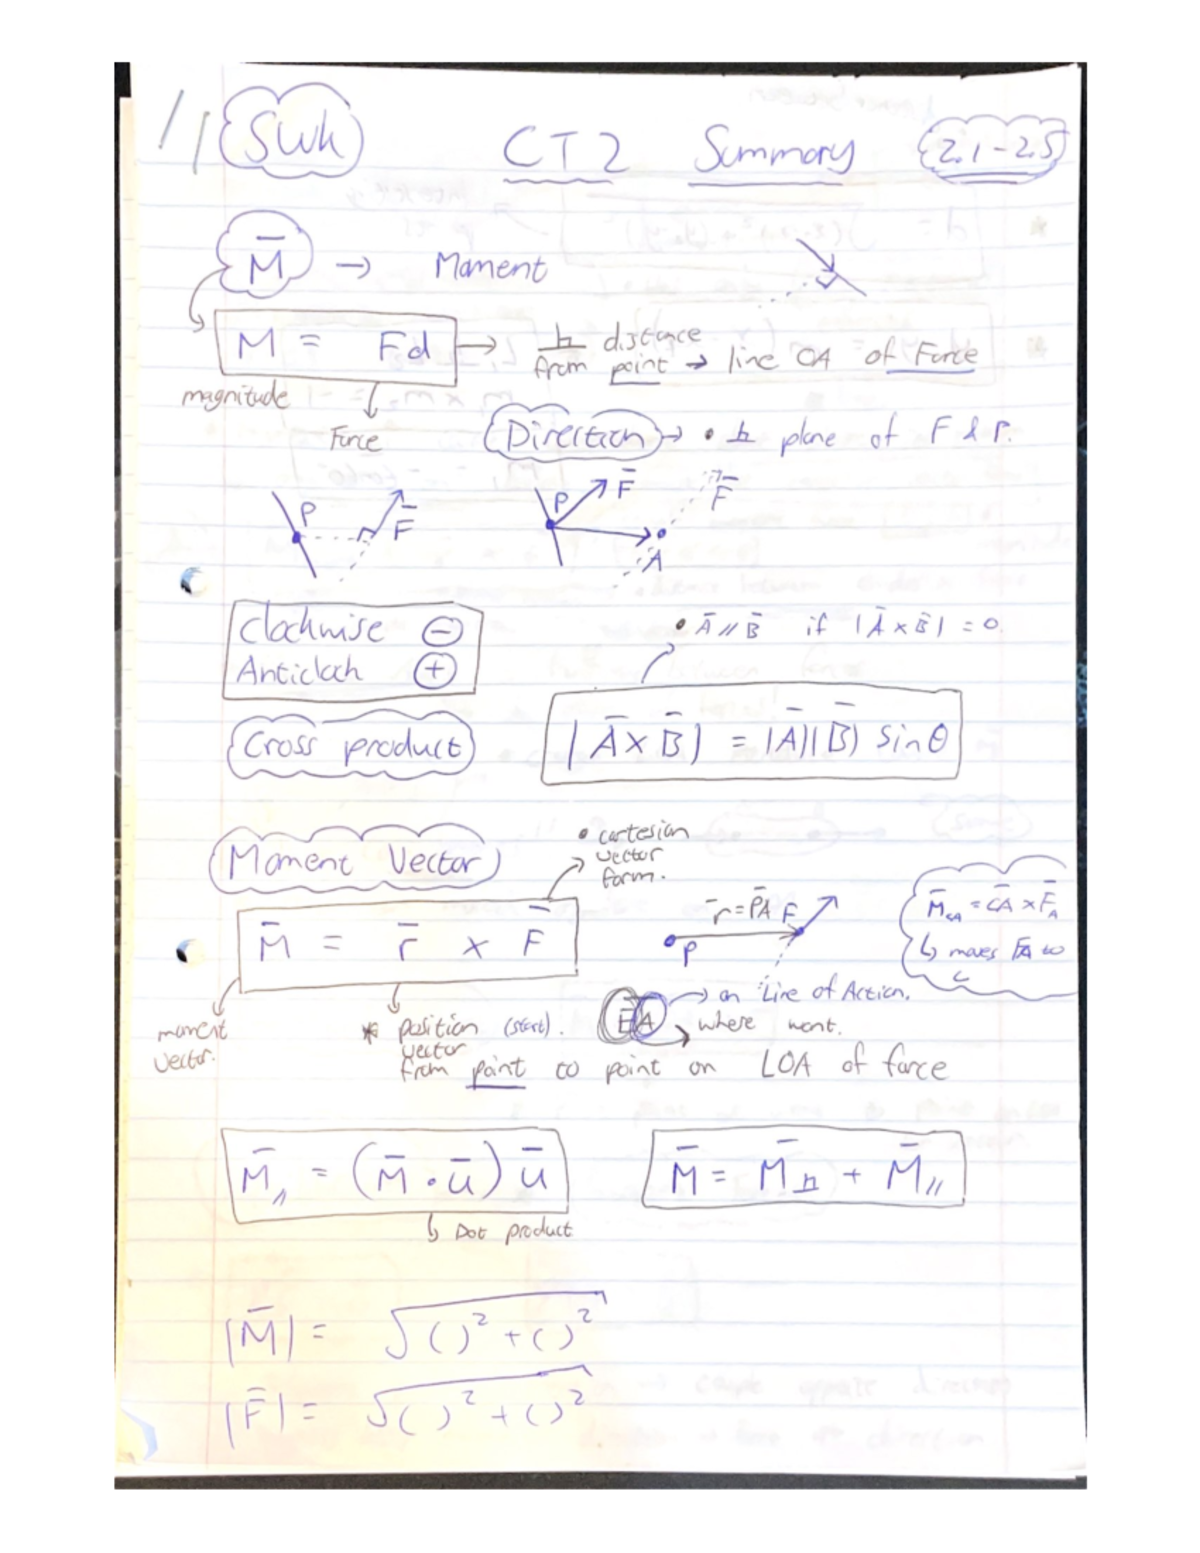 SWh CT2 Summary 2.1-2.5
M̄ → Moment
M = Fd → ⊥ distance
from point → line OA of Force
magnitude
Force
Direction → • ⊥ plane of F & P.
P F̄
P F̄ F̄
A
Clockwise ⊖
Anticlock ⊕
• Ā // B̄ if |Ā × B̄| = 0
Cross product
|Ā × B̄| = |Ā||B̄| sinθ
Moment Vector
• cartesian
vector
form.
M̄ = r̄ × F̄
r̄ = P̄A F
P
M̄CA = C̄A × F̄A
↳ moves F̄A to
C
moment
vector.
* position (start).
vector
from point to point on LOA of force
→ on Line of Action.
→ where want.
M̄// = (M̄ • ū) ū
↳ Dot product
M̄ = M̄⊥ + M̄//
|M̄| = √( )² + ( )²
|F̄| = √( )² + ( )²